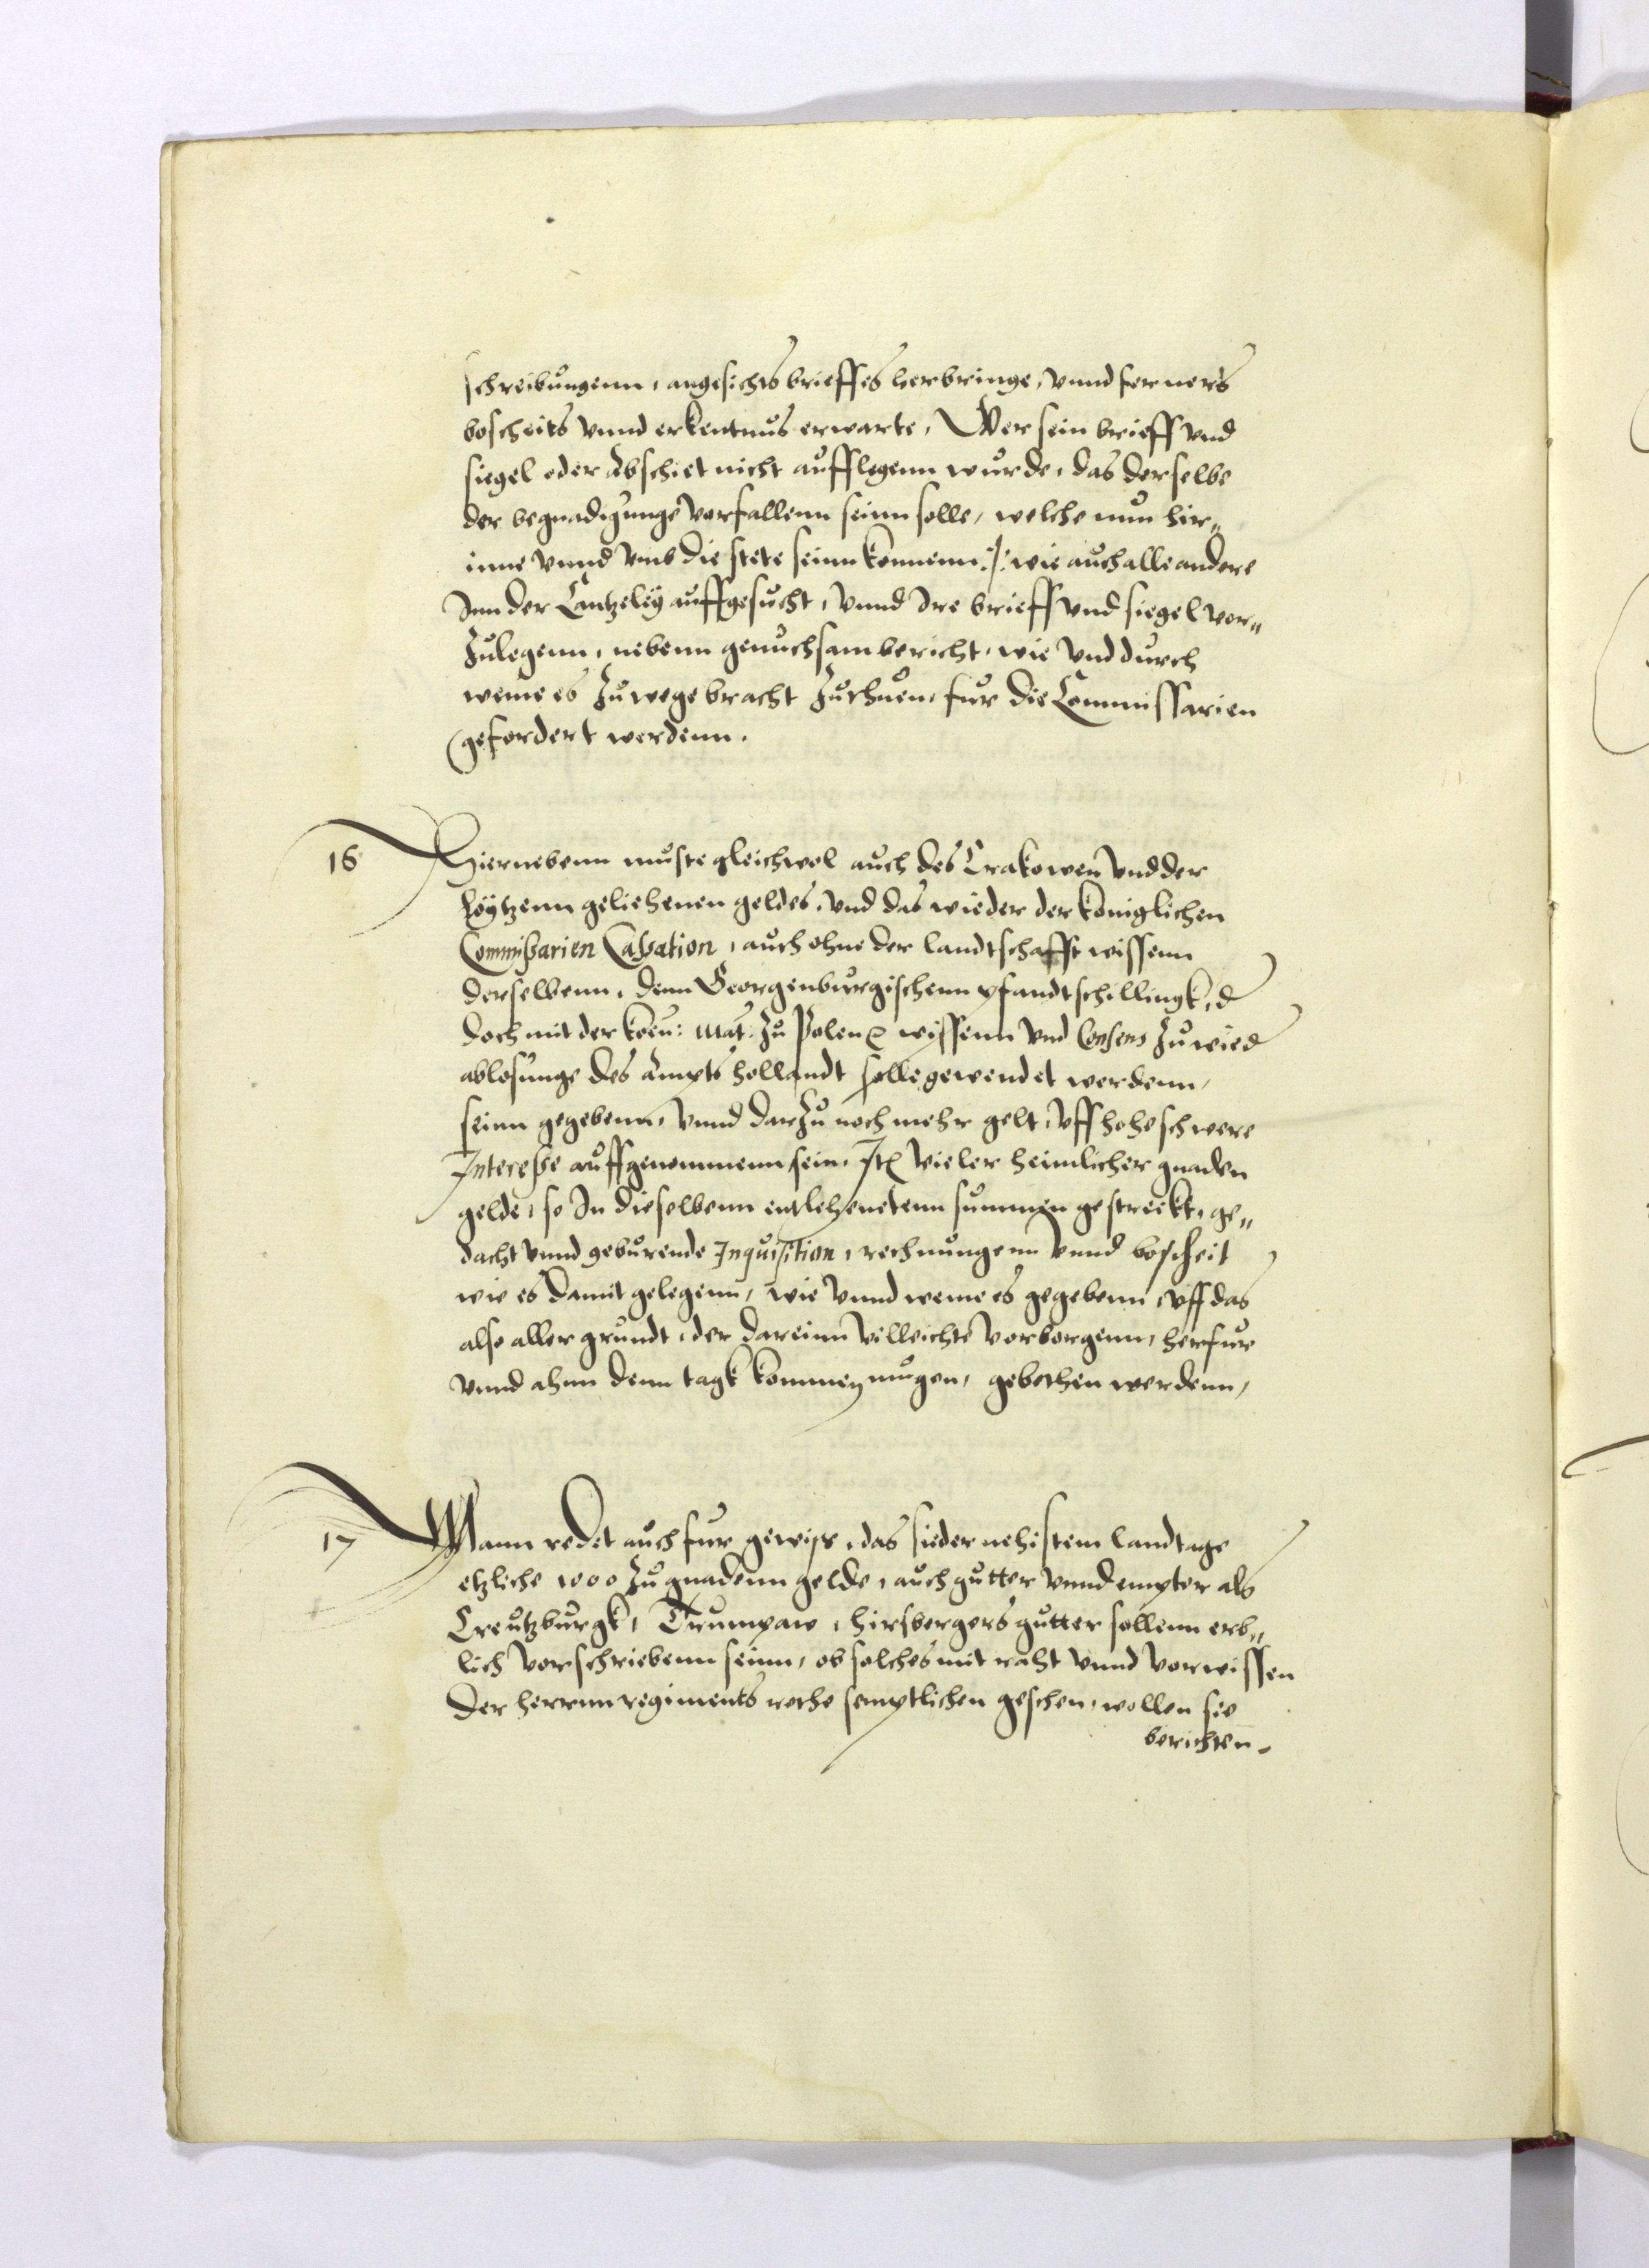 schreibungenn, angesichts brieffes herbringe, vnnd ferners
boscheits vnnd erkentnus erwarte, Wer sein brieff vnd
siegel oder Abschiet nicht aufflegenn wurde, das derselbe
der begnadigunge vorfallenn seinn solle, welche nun hir„
inne vnnd vmb die stete seinn konnenn :/: wie auch alle andere
Inn der Cantzeley auffgesucht, vnnd Ire brieff vnd siegel vor„
Zulegenn, nebenn genuchsam bericht, wie vnd durch
weme es Zu wege bracht Zuthuen, fur die Commissarien
gefordert werdenn.
16 Hiernebenn muste gleichwol auch des Crakowen vnd der
Loytzenn geliehenen geldes, vnd das wieder der koniglichen
Commißarien Caßation, auch ohne der landtschafft wissenn
derselbenn, denn Georgenburgischenn pfandtschillingk, d
doch mit der koen: Mat: Zu Polen wissenn vnd Consens Zu wied
ablosunge des Ampts Hollandt solle gewendet werdenn,
seinn gegebenn, vnnd darZu noch mehr gelt, vff hohe schwere
Interesse auffgenommenn sein, Itē vieler heimlicher gnaden
gelde, so In dieselbenn entlehenetenn summen gestreckt, ge„
dacht vnnd geburende Inquisition, rechnungenn vnnd boscheit
wie es damit gelegenn, wie vnnd weme es gegebenn, vff das
also aller grundt, der dareinn villeichte vorborgenn, herfur
vnnd ahnn denn tagk kommen mugen, gebethen werdenn,
17 Mann redet auch fur gewiss, das sieder nehistem landtage
etzliche 1000 Zu gnadenn gelde, auch gutter vnnd empter als
Creutzburgk, Trumpaw, Hirsbergers gutter sollenn erb„
lich vorschriebenn seinn, ob solches mit raht vnnd vorwissen
der herrnn regiments rethe semptlichen geschen, wollen sie
berichten.